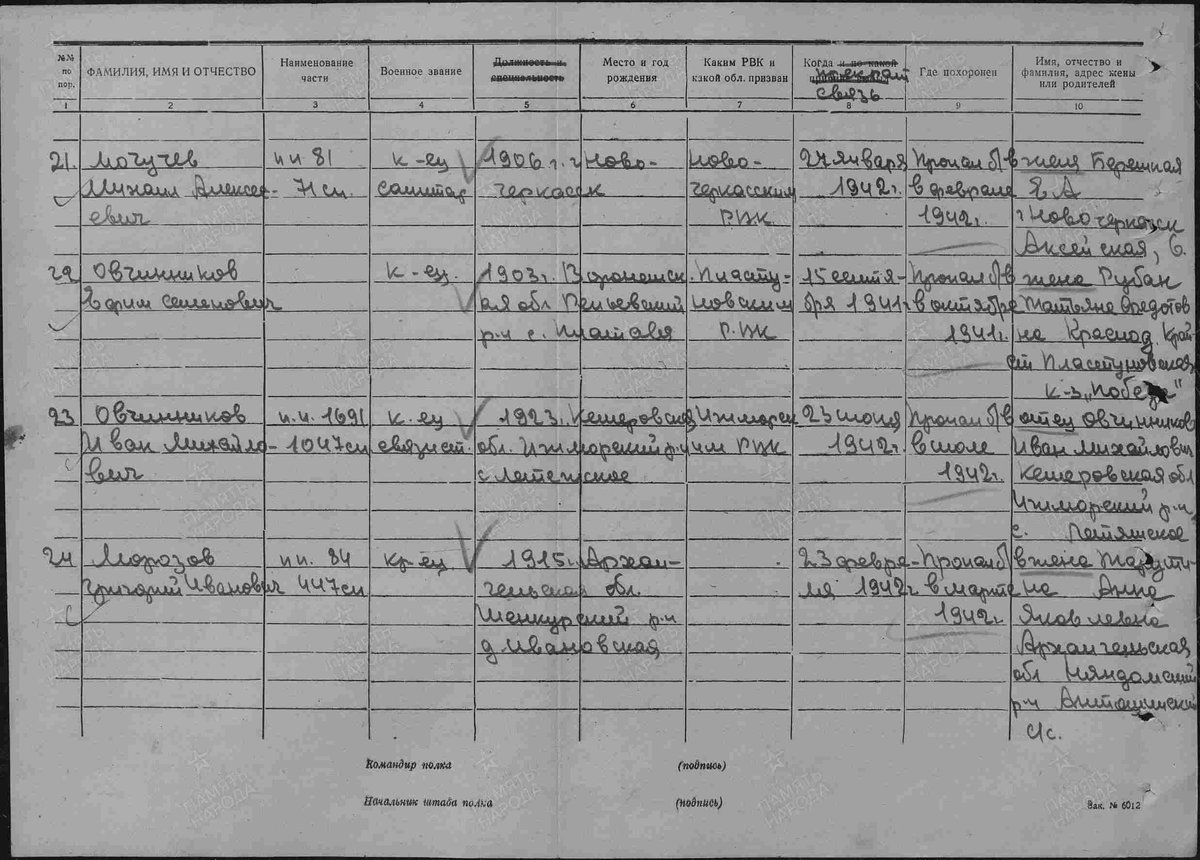 №№ по пор.
ФАМИЛИЯ, ИМЯ И ОТЧЕСТВО
Наименование части
Военное звание
Должность и специальность
Место и год рождения
Каким РВК и какой обл. призван
Когда и по какой
прекрат.
связь
Где похоронен
Имя, отчество и фамилия, адрес жены или родителей
1 2 3 4 5 6 7 8 9 10
21. Могучев пп 81 к-ец 1906 г. г Ново- Ново- 27 января Пропал б/в жена Бережная
Михаил Алексе- 71 сп. санитар черкасск черкасским 1942 г. в феврале Я А
евич РВК 1942 г. г Новочеркасск
Аксайская, 6.
22 Овчинников к-ец. 1903 г. Воронежск. Пласту- 15 сентя- Пропал б/в жена Рубан
Ефим Семенович ая обл Репьевский новским бря 1941 г в октябре Татьяна Федотов
р-н с. Платава РВК 1941 г. на Краснод. Край
ст Пластуновская
к-з „Победа"
23 Овчинников п.п. 1691 к-ец 1923. Кемеровская Ижморск 23 июня Пропал б/в отец Овчинников
Иван Михайло- 1047 сп связист. обл. Ижморский р-н им РВК 1942 г. в июле Иван Михайлович
вич с 1942 г. Кемеровская обл
Ижморский р-н
с.
24 Морозов пп. 84 кр-ец 1915 г. Архан- 23 февра- Пропал б/в жена
Григорий Иванович 447 сп гельская обл. ля 1942 г в марте на Анна
Шенкурский р-н 1942 г. Яковлевна
д. Ивановская Архангельская
обл Няндомский
р-н
с/с.
Командир полка (подпись)
Начальник штаба полка (подпись)
Зак. № 6012
ПАМЯТЬ НАРОДА